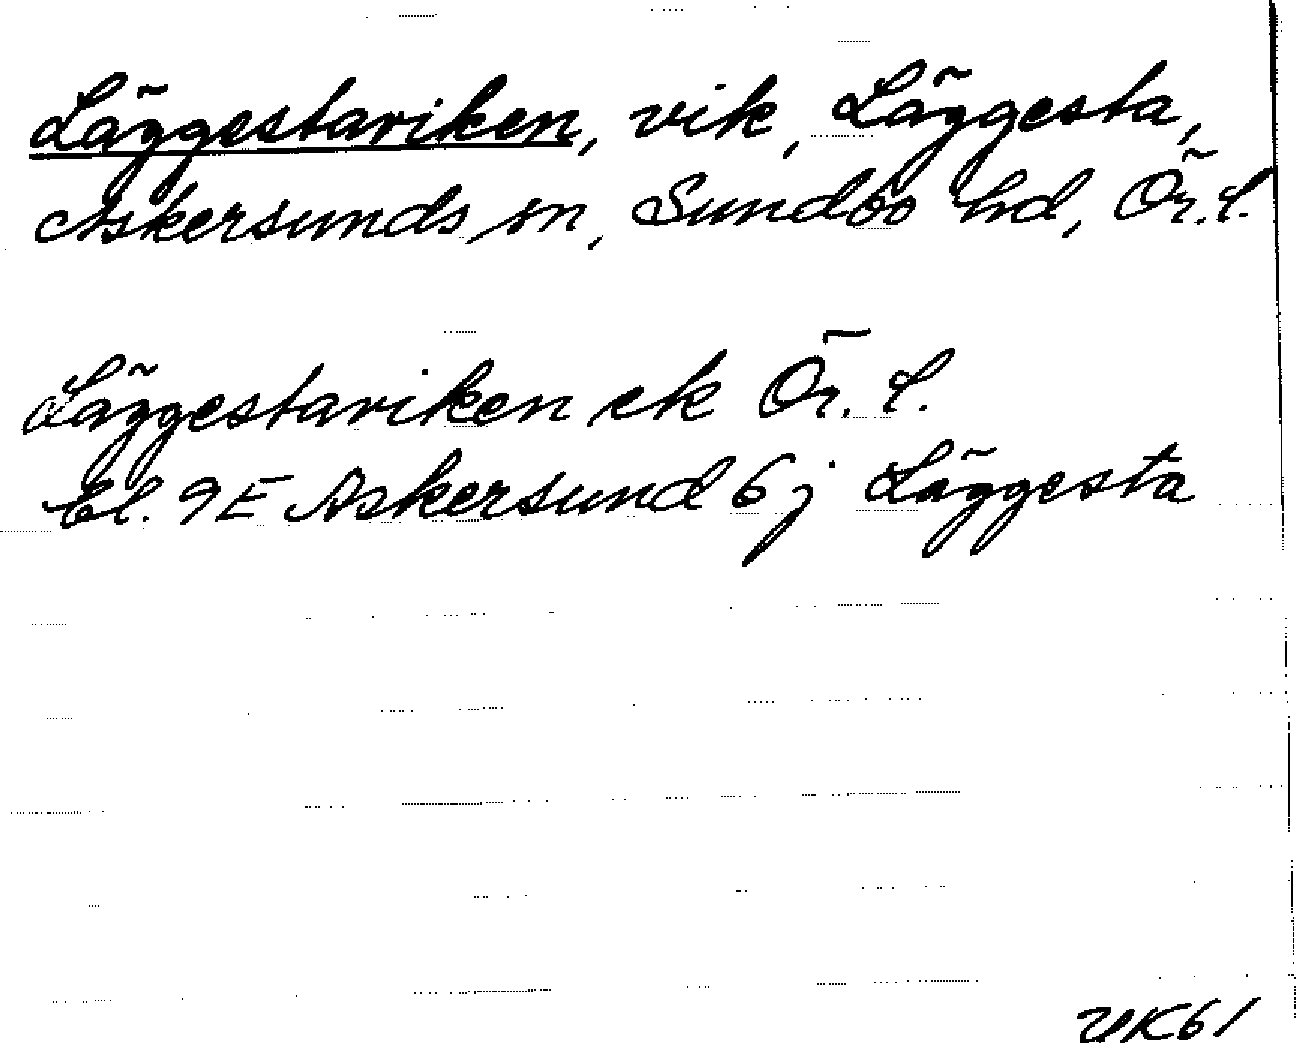 Läggestaviken, vik, Läggesta,
Askersunds sn, Sundbo hd, Ör. l.
Läggestaviken ek Ör. l.
Bl. 9E Askersund 6 j Läggesta
UK61